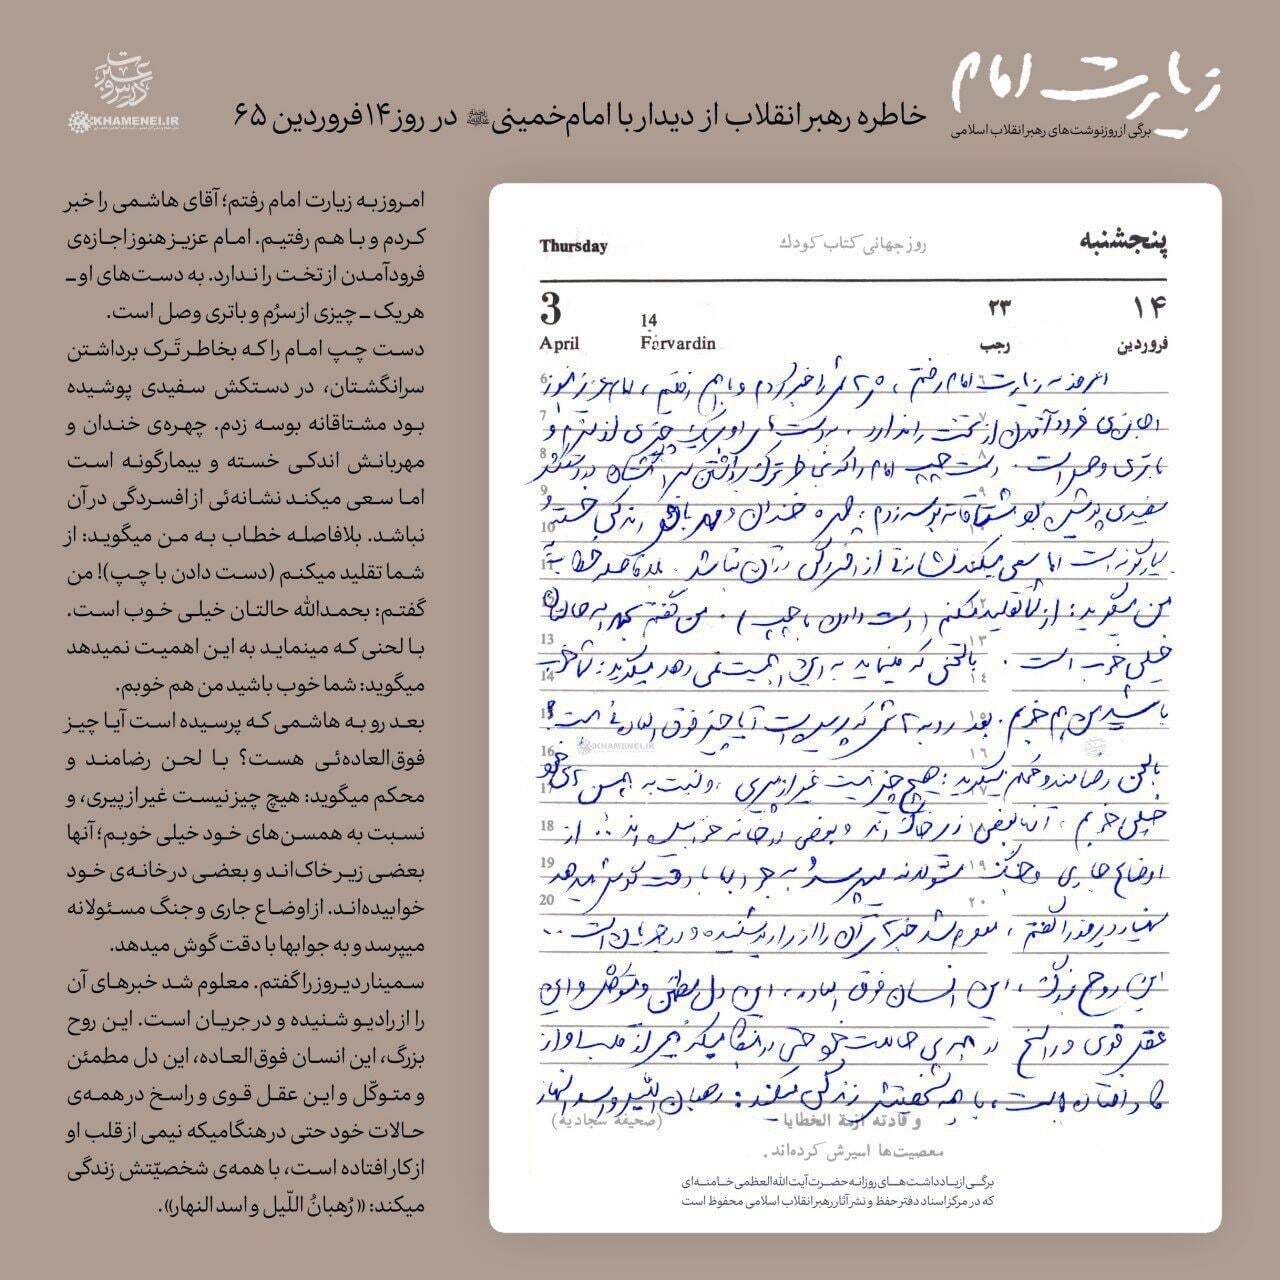 زیارت امام
برگی از روزنوشت‌های رهبر انقلاب اسلامی
خاطره رهبر انقلاب از دیدار با امام‌خمینی در روز ۱۴ فروردین ۶۵
عبرت
درس و
KHAMENEI.IR
پنجشنبه
روز جهانی کتاب کودك
Thursday
۱۴
۲۳
14
3
فروردین
رجب
Farvardin
April
امروز به زیارت امام رفتم، هاشمی را خبر کردم و با هم رفتیم، امام عزیز هنوز
اجازه‌ی فرود آمدن از تخت را ندارد. به دست‌های او هر یک چیزی از سرم و
باتری وصل است. دست چپ امام را که بخاطر ترک برداشتن سرانگشتان در دستکش
سفیدی پوشیده بود مشتاقانه بوسه زدم، چهره خندان و مهربانش اندکی خسته و
بیمارگونه است اما سعی میکند نشانه‌ئی از افسردگی در آن نباشد. بلافاصله خطاب به
من میگوید: از شما تقلید میکنم (دست دادن با چپ). من گفتم بحمدالله حالتان
خیلی خوب است. با لحنی که مینماید به این اهمیت نمی‌دهد میگوید: شما خوب
باشید من هم خوبم. بعد رو به هاشمی که پرسیده است آیا چیز فوق العاده‌ئی هست؟
با لحن رضامند و محکم میگوید: هیچ چیز نیست غیر از پیری، و نسبت به همسن‌های خود
خیلی خوبم، آنها بعضی زیر خاک‌اند و بعضی در خانه خوابیده‌اند... از
اوضاع جاری و جنگ مسئولانه میپرسد و به جوابها با دقت گوش میدهد
سمینار دیروز را گفتم، معلوم شد خبرهای آن را از رادیو شنیده و در جریان است...
این روح بزرگ، این انسان فوق العاده، این دل مطمئن و متوکل و این
عقل قوی و راسخ در همه‌ی حالات خود حتی در هنگامیکه نیمی از قلب او از
کار افتاده است، با همه شخصیتش زندگی میکند: رهبان اللیل و اسد النهار
و قادته ازمة الخطایا (صحیفه سجادیه)
معصیت‌ها اسیرش کرده‌اند.
برگی از یادداشت‌های روزانه حضرت آیت الله العظمی خامنه‌ای
که در مرکز اسناد دفتر حفظ و نشر آثار رهبر انقلاب اسلامی محفوظ است
6
7
8
9
10
11
13
14
15
16
17
18
19
20
KHAMENEI.IR
امروز به زیارت امام رفتم؛ آقای هاشمی را خبر
کردم و با هم رفتیم. امام عزیز هنوز اجازه‌ی
فرودآمدن از تخت را ندارد. به دست‌های او ـ
هریک ـ چیزی از سرُم و باتری وصل است.
دست چپ امام را که بخاطر تَرک برداشتن
سرانگشتان، در دستکش سفیدی پوشیده
بود مشتاقانه بوسه زدم. چهره‌ی خندان و
مهربانش اندکی خسته و بیمارگونه است
اما سعی میکند نشانه‌ئی از افسردگی در آن
نباشد. بلافاصله خطاب به من میگوید: از
شما تقلید میکنم (دست دادن با چپ)! من
گفتم: بحمدالله حالتان خیلی خوب است.
با لحنی که مینماید به این اهمیت نمیدهد
میگوید: شما خوب باشید من هم خوبم.
بعد رو به هاشمی که پرسیده است آیا چیز
فوق‌العاده‌ئی هست؟ با لحن رضامند و
محکم میگوید: هیچ چیز نیست غیر از پیری، و
نسبت به همسن‌های خود خیلی خوبم؛ آنها
بعضی زیر خاک‌اند و بعضی در خانه‌ی خود
خوابیده‌اند. از اوضاع جاری و جنگ مسئولانه
میپرسد و به جوابها با دقت گوش میدهد.
سمینار دیروز را گفتم. معلوم شد خبرهای آن
را از رادیو شنیده و در جریان است. این روح
بزرگ، این انسان فوق‌العاده، این دل مطمئن
و متوکّل و این عقل قوی و راسخ در همه‌ی
حالات خود حتی در هنگامیکه نیمی از قلب او
از کار افتاده است، با همه‌ی شخصیّتش زندگی
میکند: «رُهبانُ اللّیل و اسد النهار».